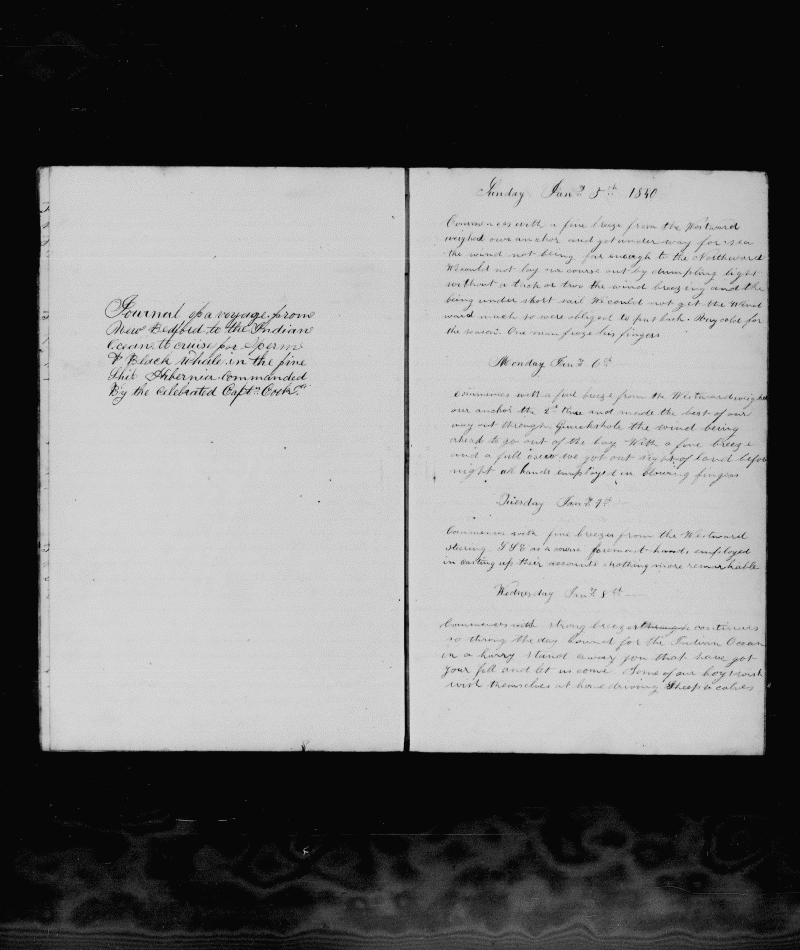 Journal of a voyage from
New Bedford to the Indian
Ocean to cruise for Sperm
& Black Whale in the fine
Ship Hibernia Commanded
By the celebrated Captn. Cook
Sunday Jany 5th 1840
Commences with a fine breeze from the Westward
weighed our anchor and got under way for sea
the wind not being far enough to the Northward
We could not lay in course out by dumpling light
without a tack or two the wind breezing and the
being under short sail We could not get the Wind
ward much so were obliged to put back. Very cold for
the season. One man froze his fingers
Monday Jany 6th
Commences with a fine breeze from the Westward weighed
our anchor the 2d time and made the best of our
way out through Quickshole the wind being
ahead to go out of the bay With a fine breeze
and a full crew we got out sight of land before
night all hands employed in blowing fingers
Tuesday Jany 7th
Commences with fine breezes from the Westward
stearing SSE as a course foremast hands employed
in casting up their accounts nothing more remarkable
Wednesday Jany 8th
Commences with strong breezes through continues
so throug the day bound for the Indian Ocean
in a hurry stand away you that have got
your fill and let us come Some of our boys wish
wish themselves at home driving Sheep & calves